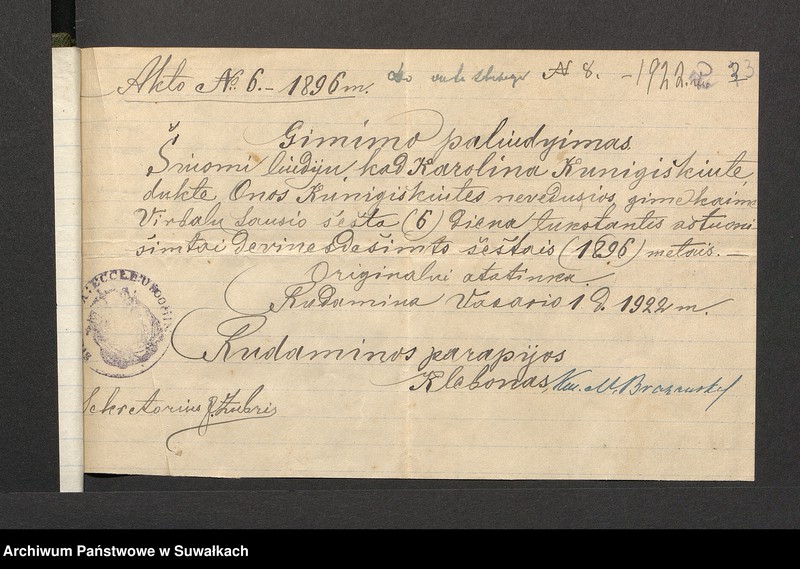 Akto № 6. - 1896 m.
do N 8. - 1922. 23
Gimimo paliudyimas
Šiuomi liudiju, kad Karolina Kunigiškiutė,
duktė Onos Kunigiškiutes nevedusios, gimė kaime
Virbalu Sausio šešta (6) diena tukstantis aštuoni
simtai devinesdešimto šeštais (1896) metais. —
Originalui atatinka.
Rudamina Vasario 1 d. 1922 m.
Rudaminos parapijos
Klebonas, Kun. M.
Sekretorius
ECCLE
Archiwum Państwowe w Suwałkach